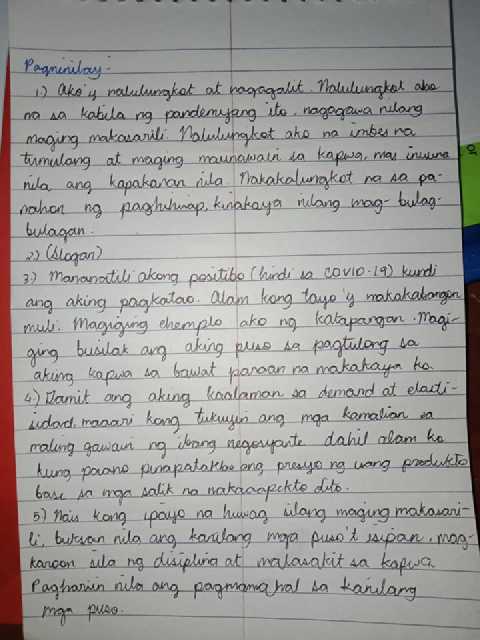 Pagninilay:
1) Ako'y nalulungkot at nagagalit. Nalulungkot ako
na sa kabila ng pandemyang ito, nagagawa nilang
maging makasarili. Nalulungkot ako na imbes na
tumulong at maging maunawain sa kapwa, mas inuuna
nila ang kapakanan nila. Nakakalungkot na sa pa-
nahon ng paghihirap, kinakaya nilang mag-bulag-
bulagan.
2) (Slogan)
3) Mananatili akong positibo (hindi sa COVID-19) kundi
ang aking pagkatao. Alam kong tayo'y makakabangon
muli. Magiging ehemplo ako ng katapangan. Magi-
ging busilak ang aking puso sa pagtulong sa
aking kapwa sa bawat paraan na makakaya ko.
4) Gamit ang aking kaalaman sa demand at elasti-
sidad, maaari kong tukuyin ang mga kamalian sa
maling gawain ng ibang negosyante dahil alam ko
kung paano pinapatakbo ang presyo ng isang produkto
base sa mga salik na nakaaapekto dito.
5) Nais kong ipayo na huwag silang maging makasari-
li, buksan nila ang kanilang mga puso't isipan, mag-
karoon sila ng disiplina at malasakit sa kapwa.
Pagharíin nila ang pagmamahal sa kanilang
mga puso.